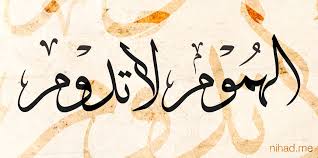 الهُمُوْم لا تدُوْم
nihad.me